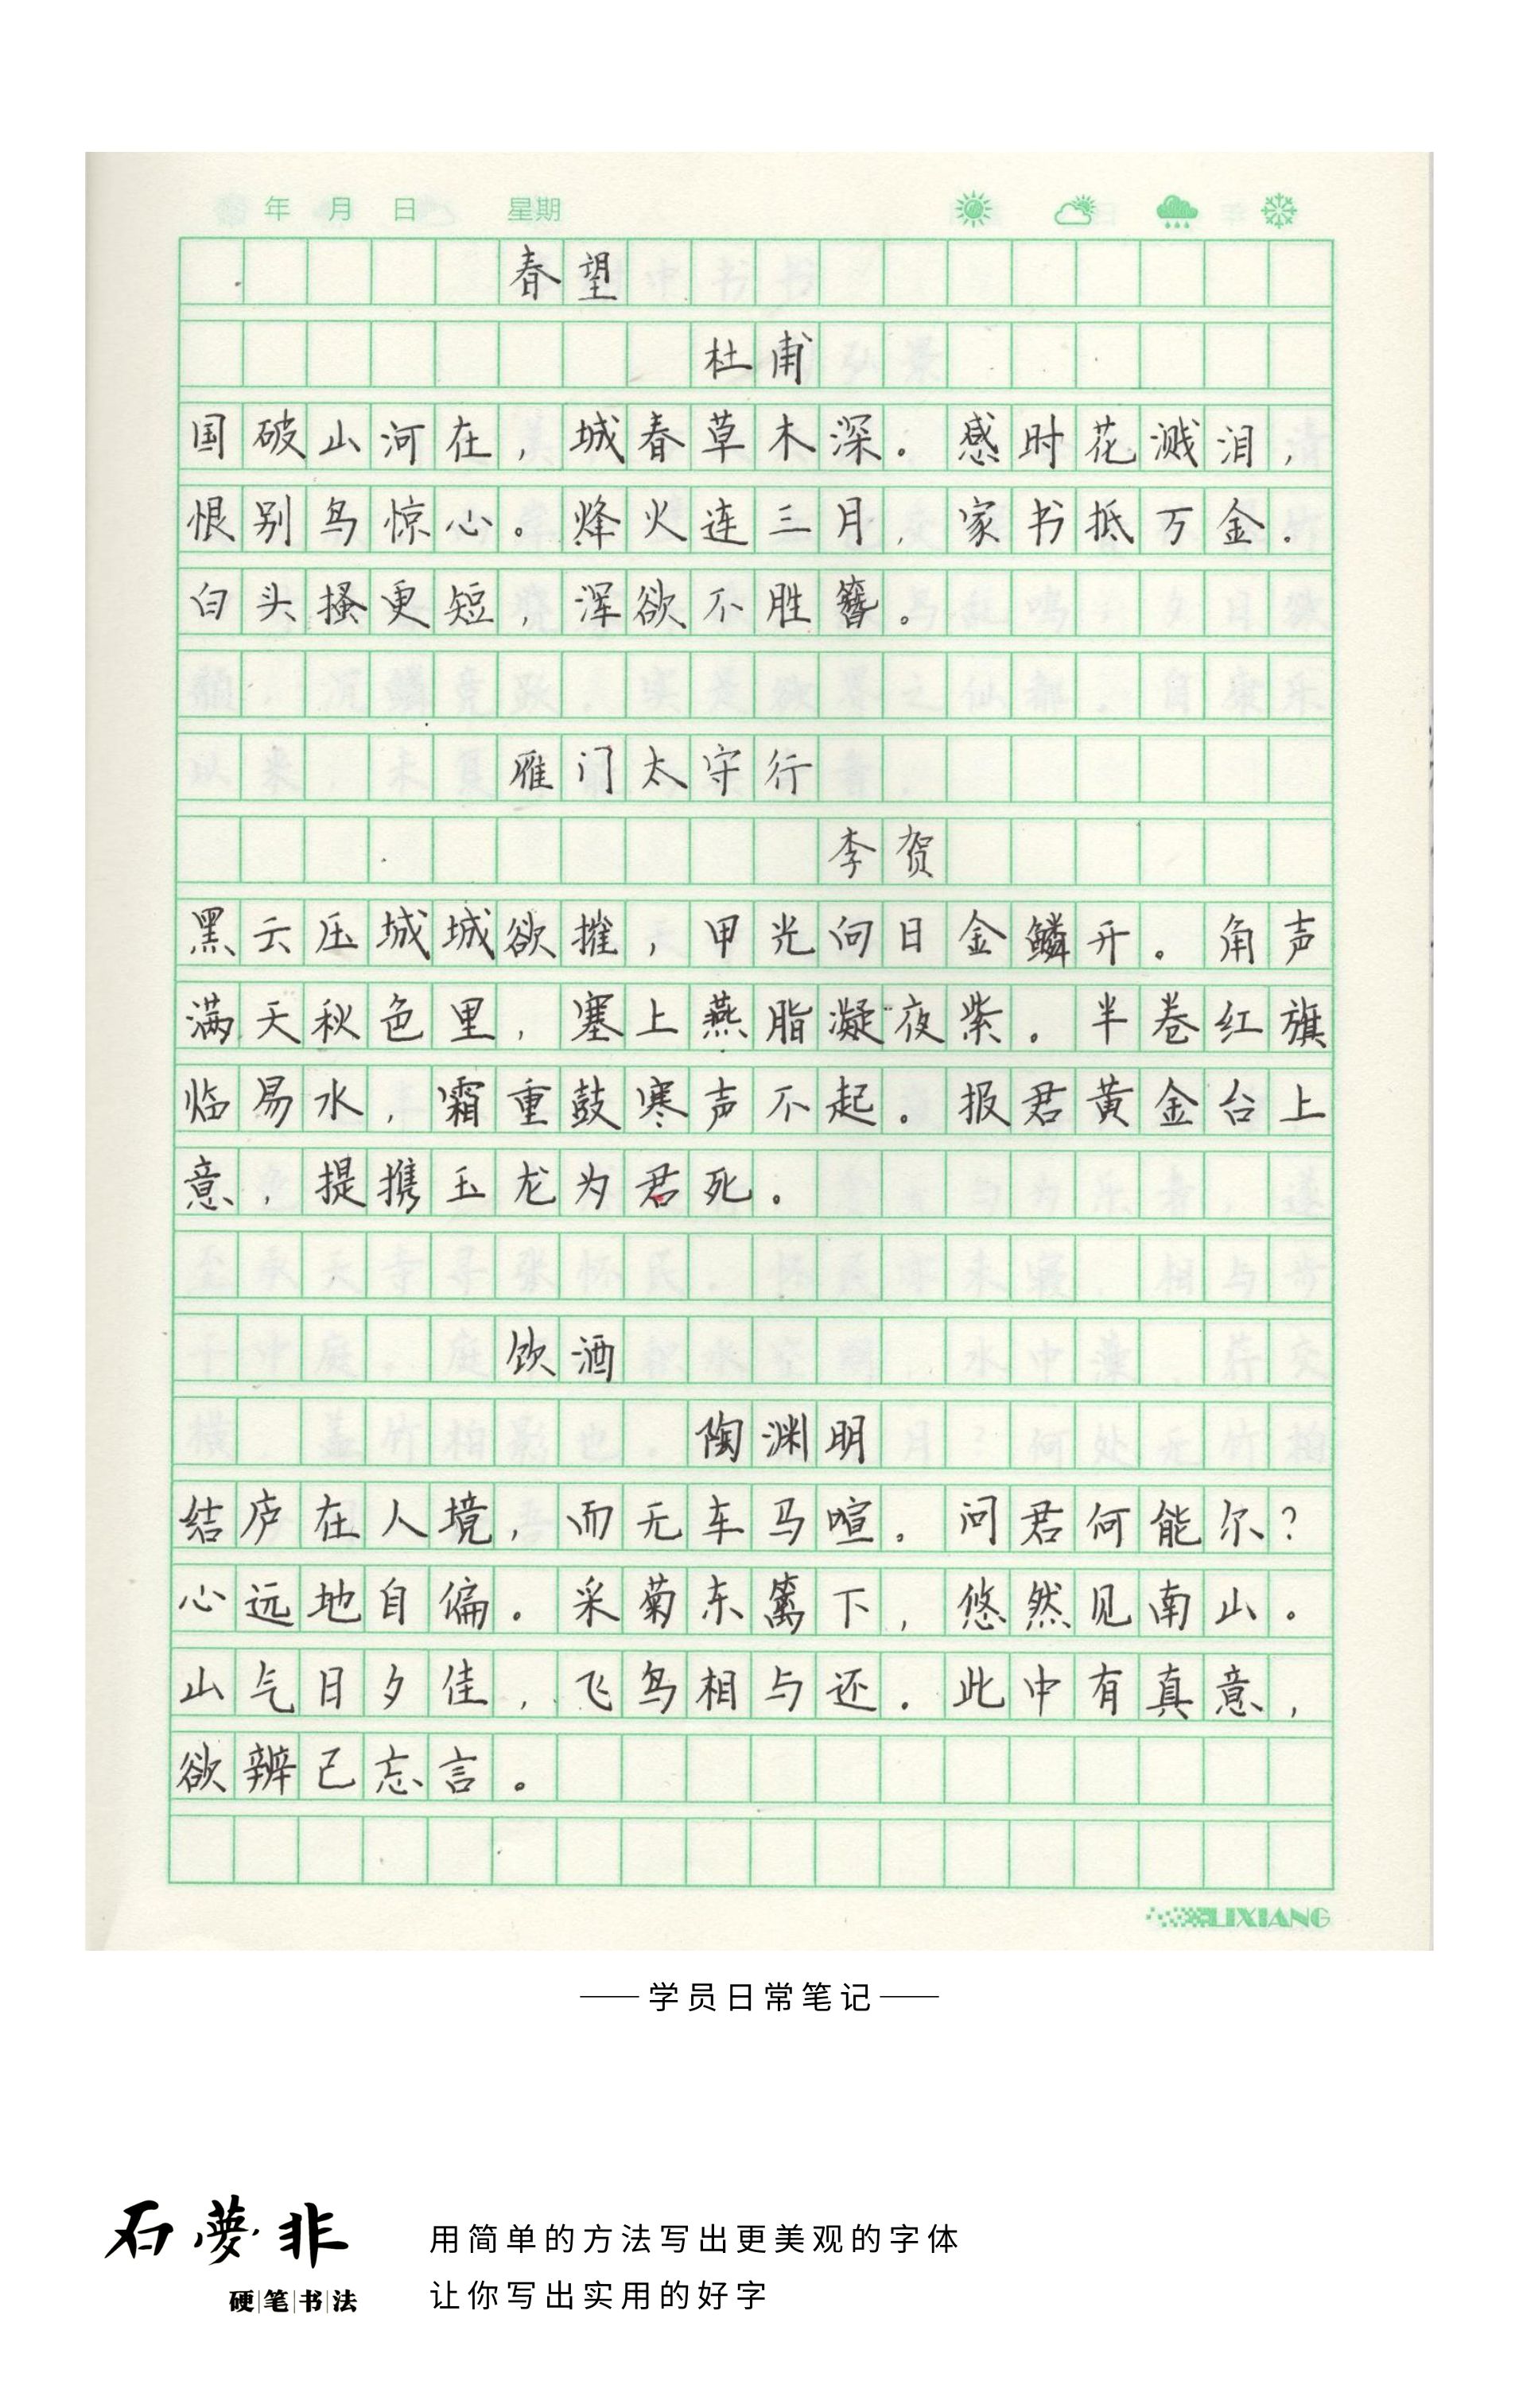 年 月 日 星期
春望
杜甫
国破山河在，城春草木深。感时花溅泪，
恨别鸟惊心。烽火连三月，家书抵万金.
白头搔更短，浑欲不胜簪。
雁门太守行
李贺
黑云压城城欲摧，甲光向日金鳞开。角声
满天秋色里，塞上燕脂凝夜紫.半卷红旗
临易水，霜重鼓寒声不起。报君黄金台上
意，提携玉龙为君死。
饮酒
陶渊明
结庐在人境，而无车马喧.问君何能尔?
心远地自偏。采菊东篱下，悠然见南山。
山气日夕佳，飞鸟相与还.此中有真意，
欲辨已忘言。
LIXIANG
学员日常笔记
石夢非
硬笔书法
用简单的方法写出更美观的字体
让你写出实用的好字